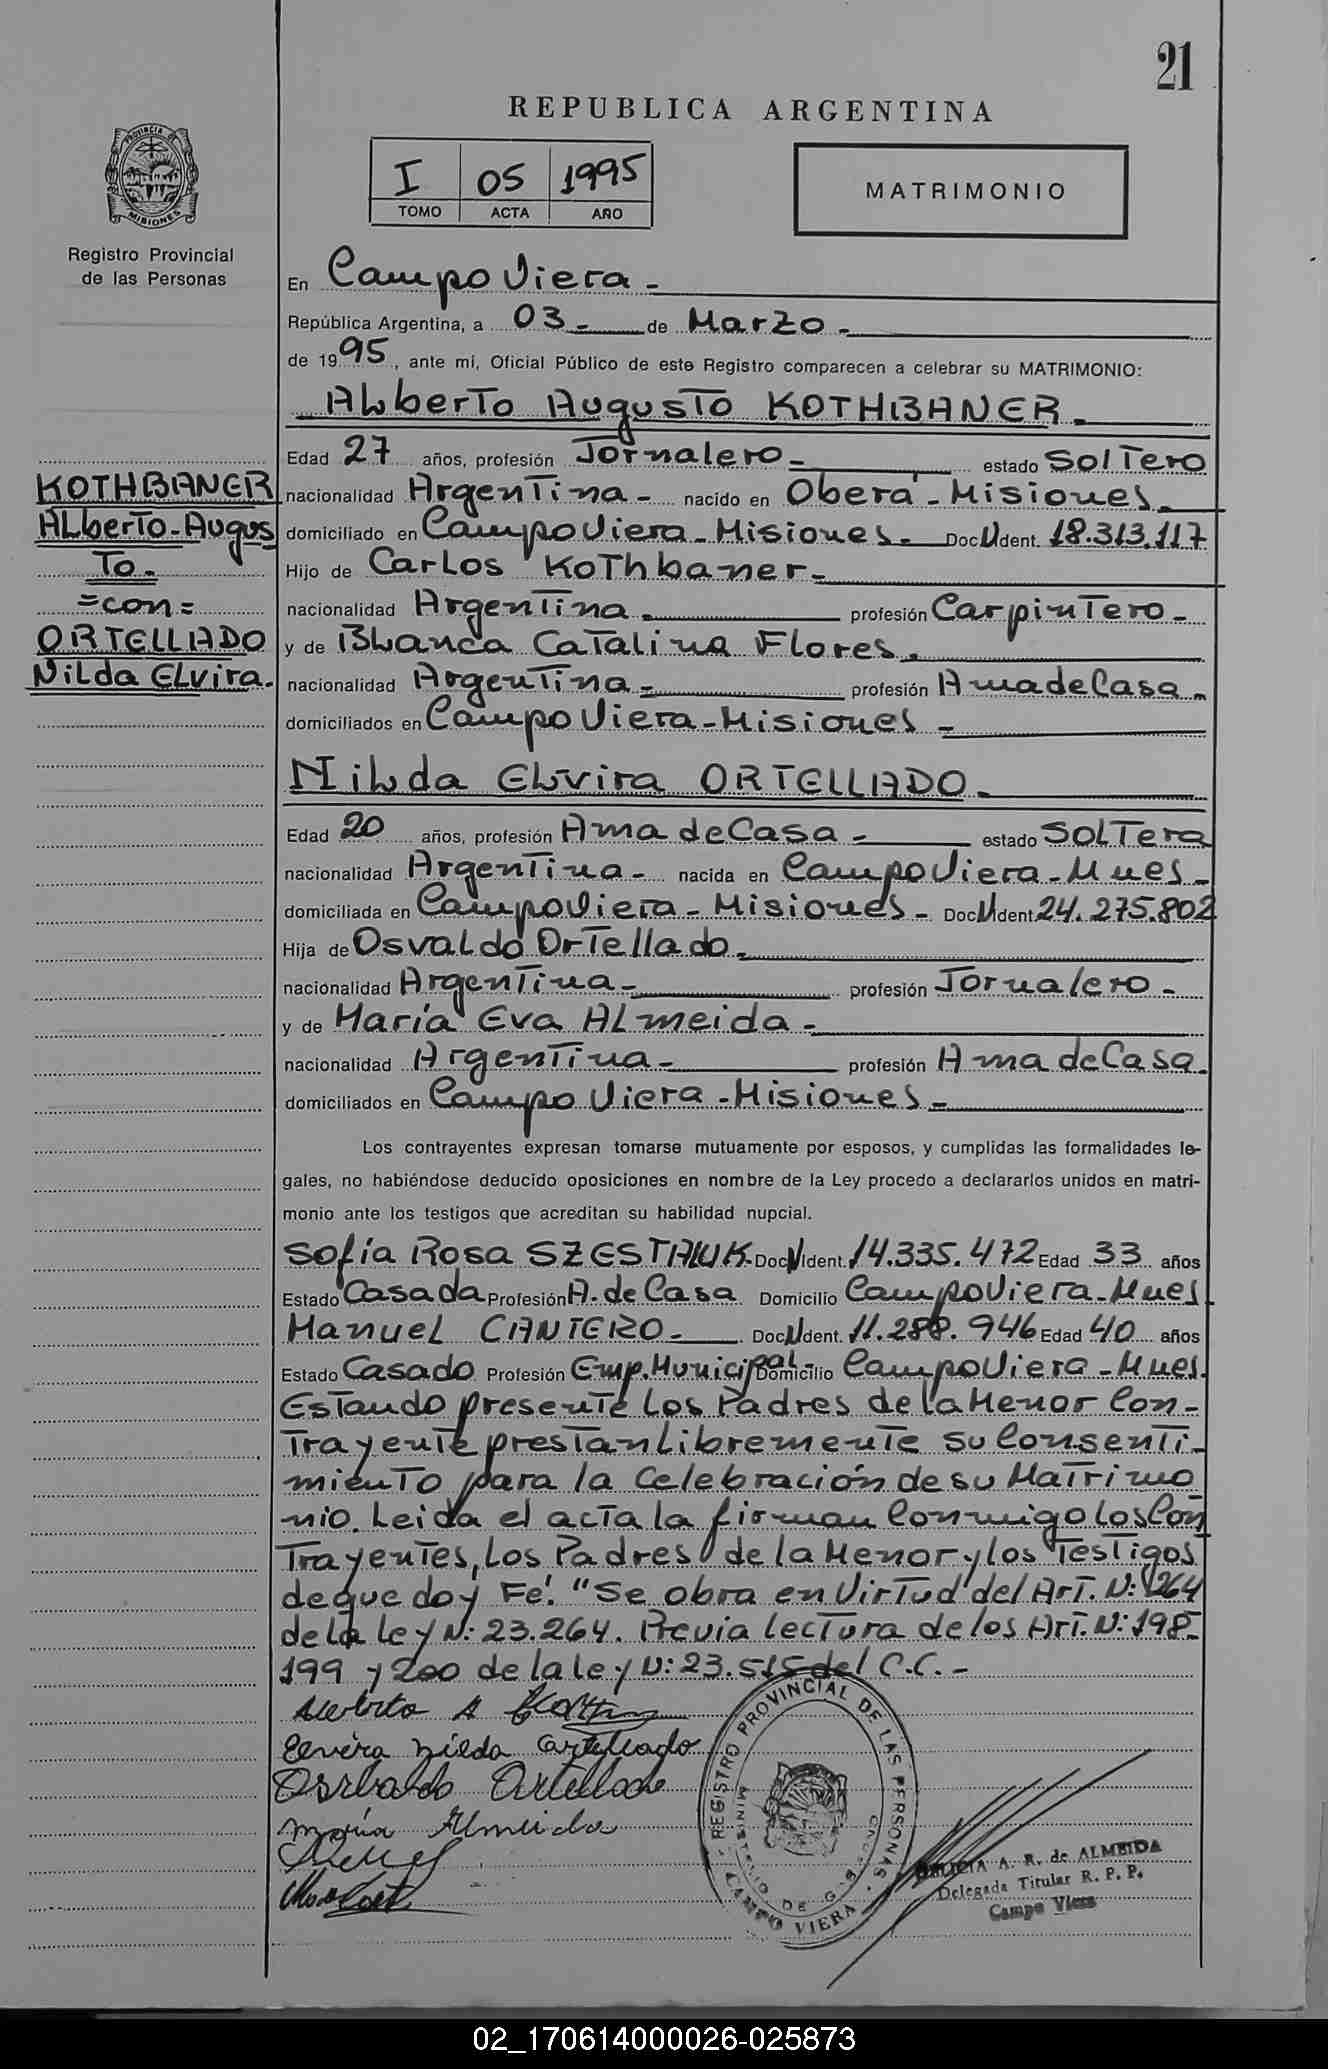 21
REPUBLICA ARGENTINA
I 05 1995
TOMO ACTA AÑO
MATRIMONIO
PROVINCIA DE
MISIONES
Registro Provincial
de las Personas
KOTHBANER
ALberTo-Augus
To.
=con=
ORTELLADO
NiLda ELvira.
En Campo Viera -
República Argentina, a 03 - de Marzo -
de 1995, ante mi, Oficial Público de este Registro comparecen a celebrar su MATRIMONIO:
ALberTo AugusTo KOTHBANER -
Edad 27 años, profesión Jornalero - estado SolTero
nacionalidad ArgenTina - nacido en Oberá - Misiones -
domiciliado en Campo Viera - Misiones - Doc N Ident. 18.313.117
Hijo de CarLos KoThbaner -
nacionalidad ArgenTina - profesión CarpinTero -
y de BLanca CaTalina Flores.
nacionalidad ArgenTina - profesión Ama de Casa -
domiciliados en Campo Viera - Misiones -
NiLda ELvira ORTELLADO -
Edad 20 años, profesión Ama de Casa - estado SOLTera
nacionalidad ArgenTina - nacida en Campo Viera - Mnes -
domiciliada en Campo Viera - Misiones - Doc N Ident. 24.275.802
Hija de OsvaLdo OrTeLLado -
nacionalidad ArgenTina - profesión Jornalero -
y de María Eva ALmeida -
nacionalidad ArgenTina - profesión Ama de Casa.
domiciliados en Campo Viera - Misiones -
Los contrayentes expresan tomarse mutuamente por esposos, y cumplidas las formalidades le-
gales, no habiéndose deducido oposiciones en nombre de la Ley procedo a declararlos unidos en matri-
monio ante los testigos que acreditan su habilidad nupcial.
Sofía Rosa Doc N Ident. 14.335.472 Edad 33 años
Estado Casada Profesión A. de Casa Domicilio Campo Viera - Mnes.
MANUEL CANTERO - Doc N Ident. 11.288.946 Edad 40 años
Estado Casado Profesión Emp. Municipal - Domicilio Campo Viera - Mnes.
EsTando presenTe Los Padres de La Menor Con-
TrayenTe presTan Libremente su ConsenTi-
mienTo para la Celebración de su MaTrimo
nio. Leida el acTa la firman Conmigo Los Con
TrayenTes, Los Padres de la Menor y los TesTigos
de que doy Fe. "Se obra en VirTud del ArT. N: 264
de la Ley N: 23.264. Previa lecTura de los ArT. N: 198-
199 y 200 de la ley N: 23.515 del C.C. -
Alberto A
Elvira Nilda Ortellado
Osvaldo Ortellado
María Almeida
REGISTRO PROVINCIAL DE LAS PERSONAS
CAMPO VIERA
A. R. de ALMEIDA
Delegada Titular R. P. P.
Campo Viera
02_170614000026-025873